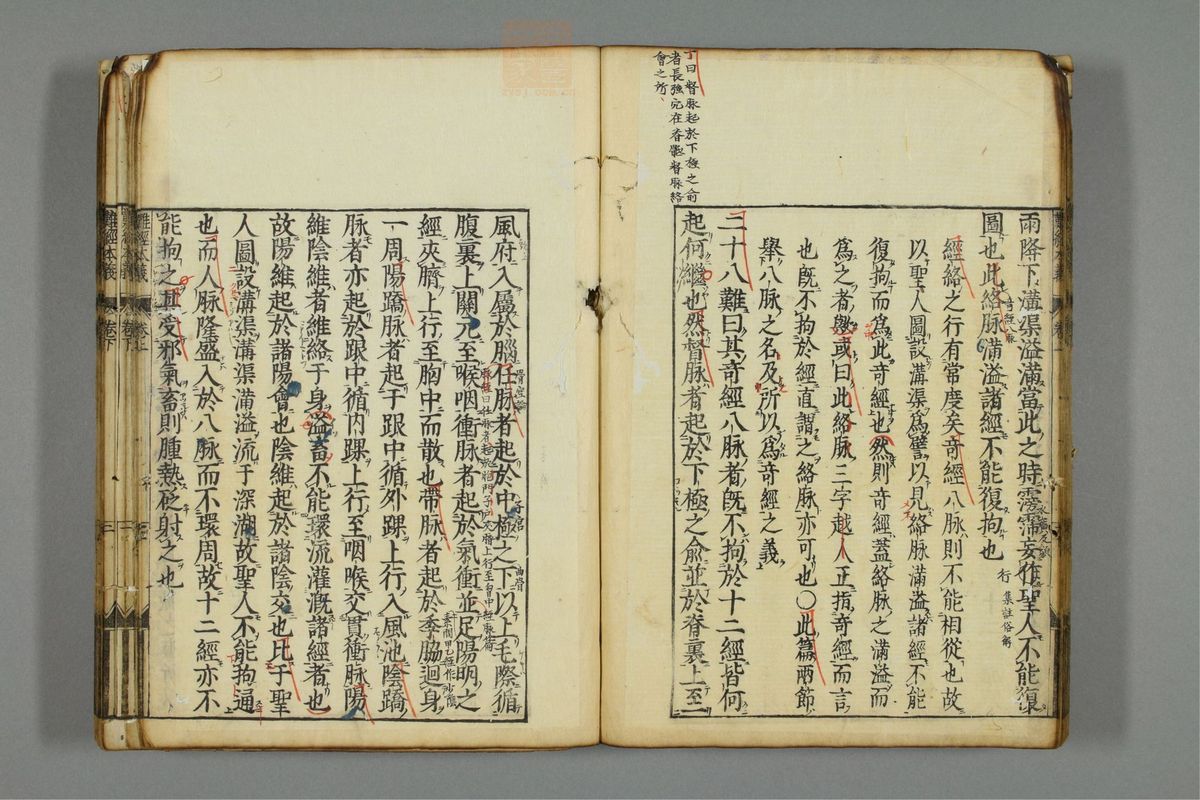 丁曰督脉起於下極之俞
者長強穴在脊骶督脉絡
會之所
雨降下溝渠溢滿當此之時霶霈妄作聖人不能復
圖也此絡脉滿溢諸經不能復拘也
經絡之行有常度矣奇經八脉則不能相從也故
以聖人圖設溝渠爲譬以見絡脉滿溢諸經不能
復拘而爲此奇經也然則奇經蓋絡脉之滿溢而
爲之者歟或曰此絡脉三字越人正指奇經而言
也既不拘於經直謂之絡脉亦可也○此篇兩節
舉八脉之名及所以爲奇經之義
二十八難曰其奇經八脉者既不拘於十二經皆何
起何繼也然督脉者起於下極之俞並於脊裏上至
風府入屬於腦任脉者起於中極之下以上毛際循
腹裏上關元至喉咽衝脉者起於氣衝並足陽明之
經夾臍上行至胸中而散也帶脉者起於季脇迴身
一周陽蹻脉者起于跟中循外踝上行入風池陰蹻
脉者亦起於跟中循内踝上行至咽喉交貫衝脉陽
維陰維者維絡于身溢畜不能環流灌漑諸經者也
故陽維起於諸陽會也陰維起於諸陰交也比于聖
人圖設溝渠溝渠滿溢流于深湖故聖人不能拘通
也而人脉隆盛入於八脉而不環周故十二經亦不
能拘之其受邪氣畜則腫熱砭射之也
難經本義
卷下